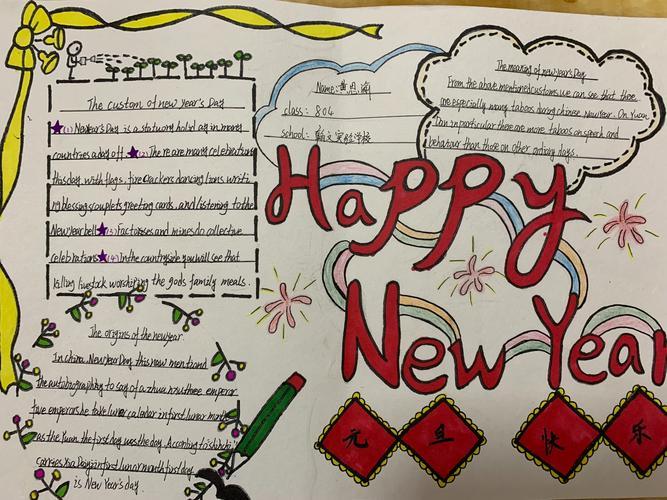 The custom of new year's Day
(1) New Year's Day is a statutory holiday in many
countries a day off (2) There are many celebrations
this day, with flags, firecrackers dancing lions writi
ng blessings couplets greeting cards, and listening to the
New Year bell (3) Factories and mines do collective
celebrations (4) In the countryside you will see that
killing livestock worshiping the gods family meals.
The origins of the new year.
In china, New Year Day, this now men
the autobiography to say of a zhuanxu three emperor
five emperors he take lunar calendar in first lunar month
as the Yuan, the first day was the day. According to
Day in first lunar month first day
is New Year's day.
Name:
class: 804
school: 文实验学校
The meaning of new year's Day
From the above mentioned customs we can see that there
are especially many taboos during chinese new Year. On Yuan
Dan in particular there are more taboos on speech and
behaviour than there on other ordinary days.
Happy
New Year
元 旦 快 乐